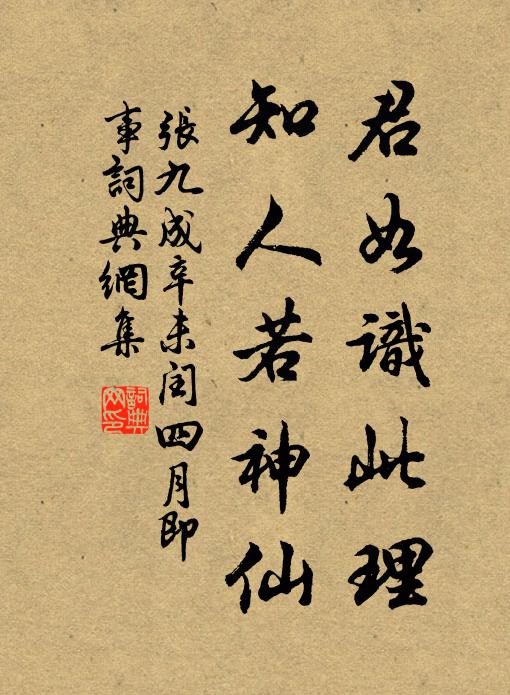 君如識此理
知人若神仙
張九成辛未閏四月即
事詞典網集
詞典網印